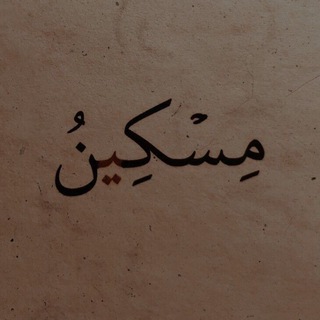 مِسْكِينُ